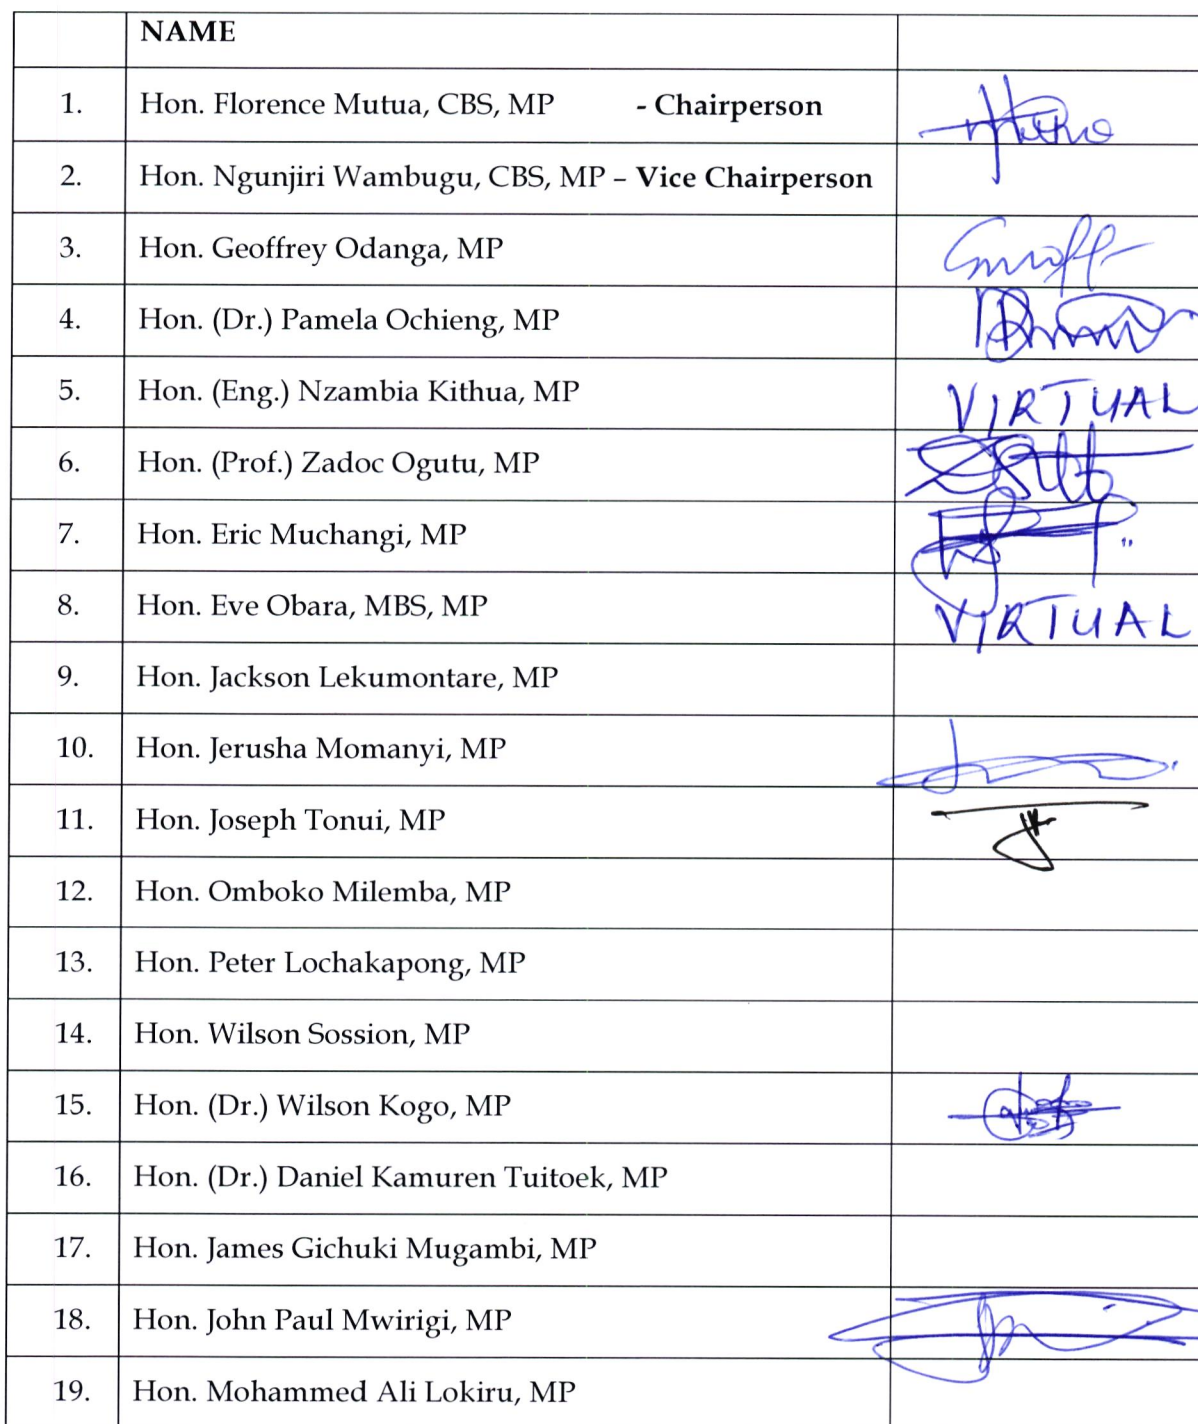 NAME
1. Hon. Florence Mutua, CBS, MP - Chairperson
2. Hon. Ngunjiri Wambugu, CBS, MP – Vice Chairperson
3. Hon. Geoffrey Odanga, MP
4. Hon. (Dr.) Pamela Ochieng, MP
5. Hon. (Eng.) Nzambia Kithua, MP VIRTUAL
6. Hon. (Prof.) Zadoc Ogutu, MP
7. Hon. Eric Muchangi, MP
8. Hon. Eve Obara, MBS, MP VIRTUAL
9. Hon. Jackson Lekumontare, MP
10. Hon. Jerusha Momanyi, MP
11. Hon. Joseph Tonui, MP
12. Hon. Omboko Milemba, MP
13. Hon. Peter Lochakapong, MP
14. Hon. Wilson Sossion, MP
15. Hon. (Dr.) Wilson Kogo, MP
16. Hon. (Dr.) Daniel Kamuren Tuitoek, MP
17. Hon. James Gichuki Mugambi, MP
18. Hon. John Paul Mwirigi, MP
19. Hon. Mohammed Ali Lokiru, MP